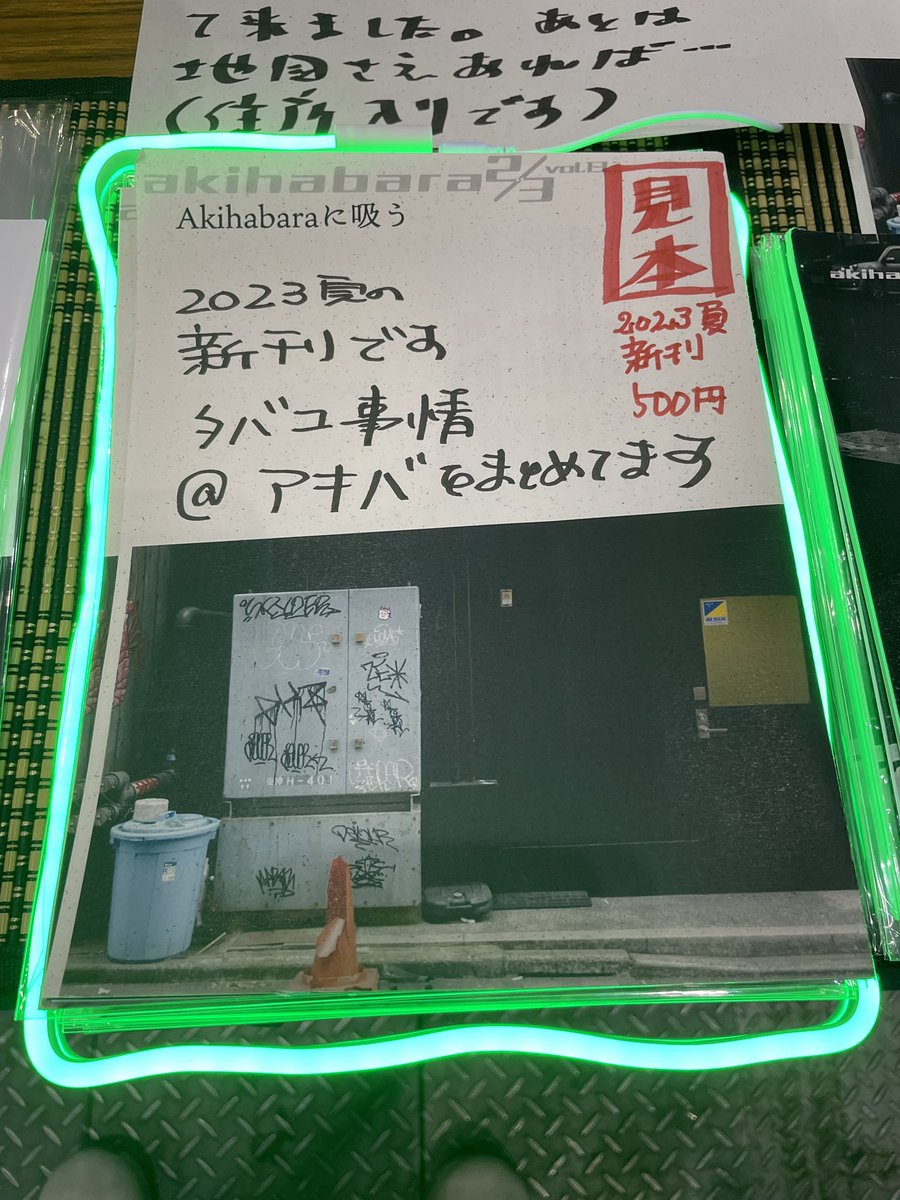 て来ました。あとは
地図さえあれば…
(住所入りです)
akihabara2/3 vol.13
Akihabaraに吸う
見本
2023夏の
新刊です
2023夏
新刊
500円
タバコ事情
@ アキバをまとめてます
H-401
akiha